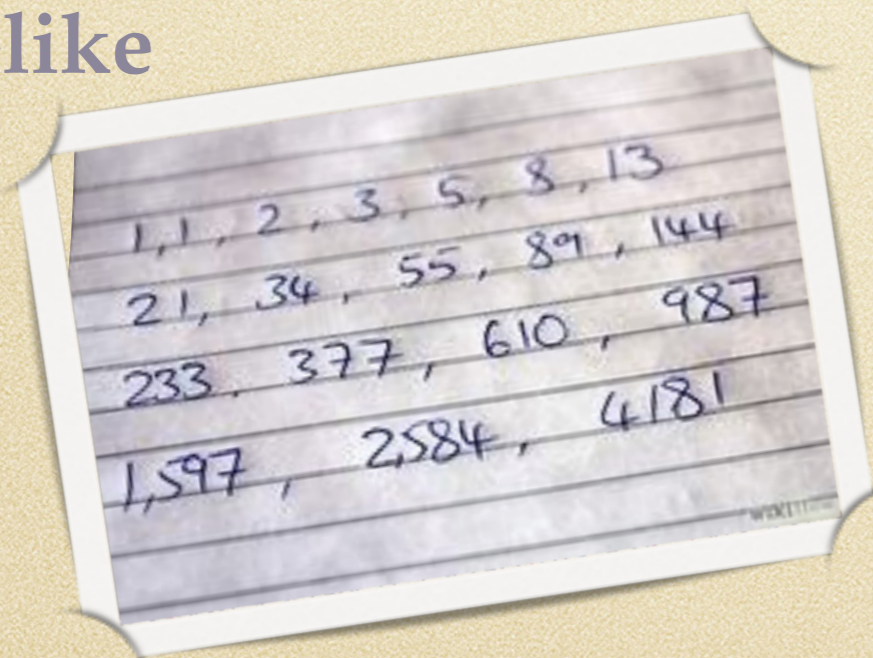 like
1,1, 2, 3, 5, 8, 13
21, 34, 55, 89, 144
233, 377, 610, 987
1,597, 2,584, 4181